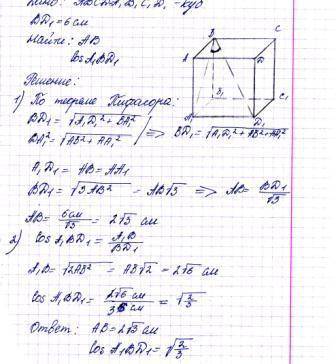 Дано: ABCDA₁B₁C₁D₁ - куб
BD₁ = 6 см
Найти: AB
cos A₁BD₁
Решение:
1) По теореме Пифагора:
BD₁ = √(A₁D₁² + BA₁²)
BA₁² = √(AB² + AA₁²) => BD₁ = √(A₁D₁² + AB² + AA₁²)
A₁D₁ = AB = AA₁
BD₁ = √(3AB²) = AB√3 => AB = BD₁/√3
AB = 6 см/√3 = 2√3 см
2) cos A₁BD₁ = A₁B/BD₁
A₁B = √(2AB²) = AB√2 = 2√6 см
cos A₁BD₁ = 2√6 см/6 см = √(2/3)
Ответ: AB = 2√3 см
cos A₁BD₁ = √(2/3)
B
C
A
D
B₁
C₁
A₁
D₁